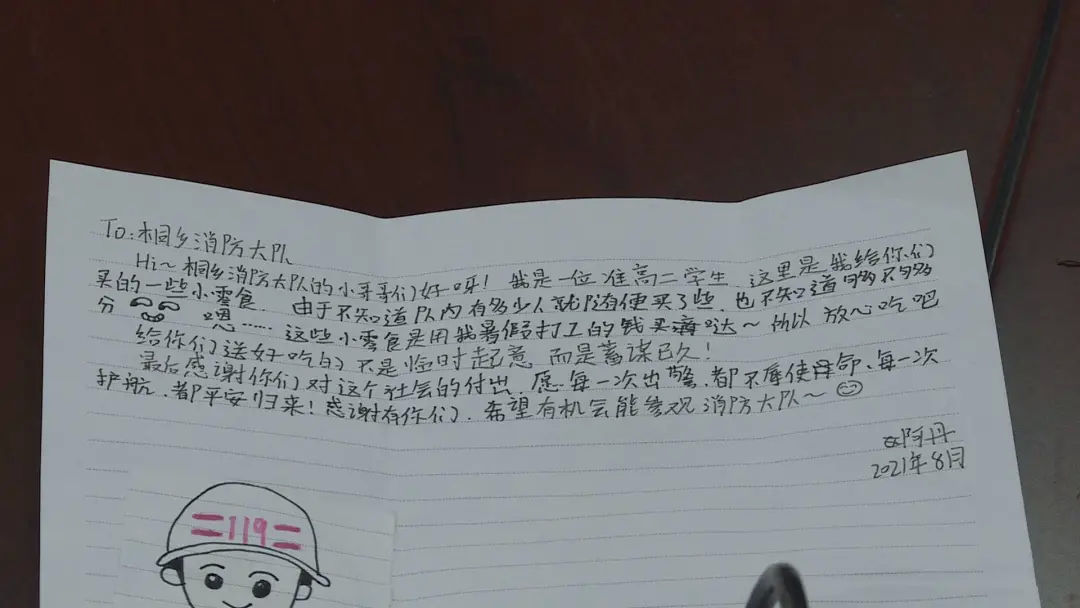 To:桐乡消防大队
Hi~桐乡消防大队的小哥哥们好呀！我是一位准高二学生.这里是我给你们
买的一些小零食.由于不知道队内有多少人就随便买了些.也不知道够不够
分 嗯……这些小零食是用我暑假打工的钱买 哒~所以放心吃吧
给你们送好吃的不是临时起意.而是蓄谋已久！
最后感谢你们对这个社会的付出.愿每一次出警.都不辱使命.每一次
护航.都平安归来！感谢有你们.希望有机会能参观消防大队~
阿丹
2021年8月
119